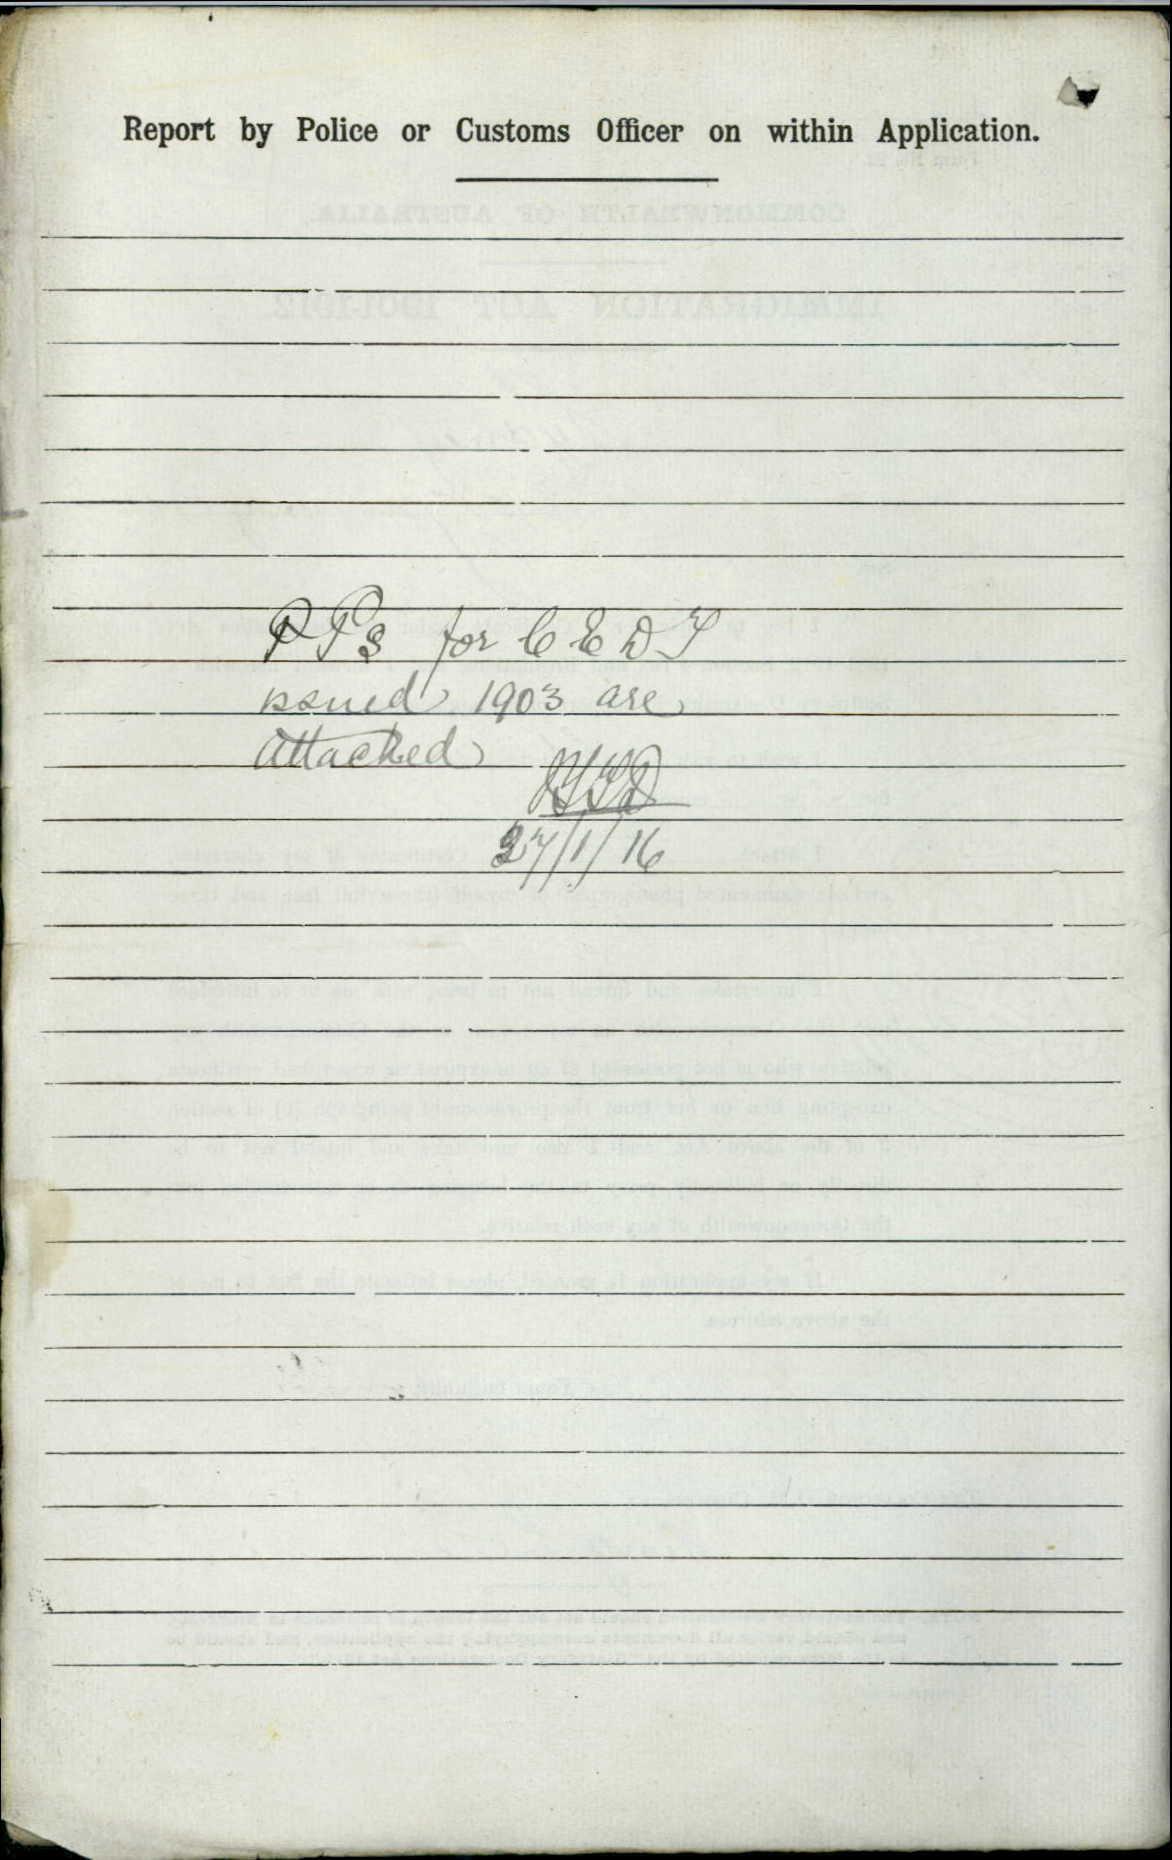 Report by Police or Customs Officer on within Application.
PPs for CEDT
issued 1903 are
attached
27/1/16